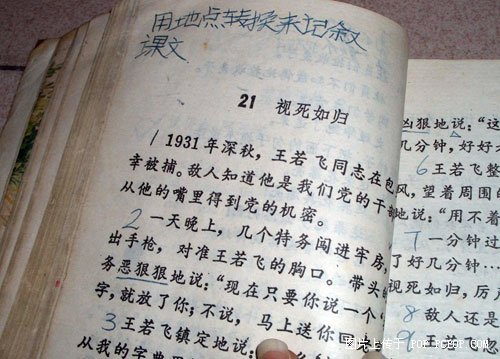 用地点转换来记叙
课文
21 视死如归
1 1931年深秋，王若飞同志在包
幸被捕。敌人知道他是我们党的干
从他的嘴里得到党的机密。
2 一天晚上，几个特务闯进牢房，
出手枪，对准王若飞的胸口。带头的
务恶狠狠地说：“现在只要你说一个“
字，就放了你；不说，马上送你回
3 王若飞镇定地说：
从我的字典里
凶狠地说：“这
几分钟，好好
6 王若飞整
风，望着周围
地说：“用不着
7 一分钟过
了好几分钟…
视死如归，厉
8 敌人还是
9 王若飞
图片上传于